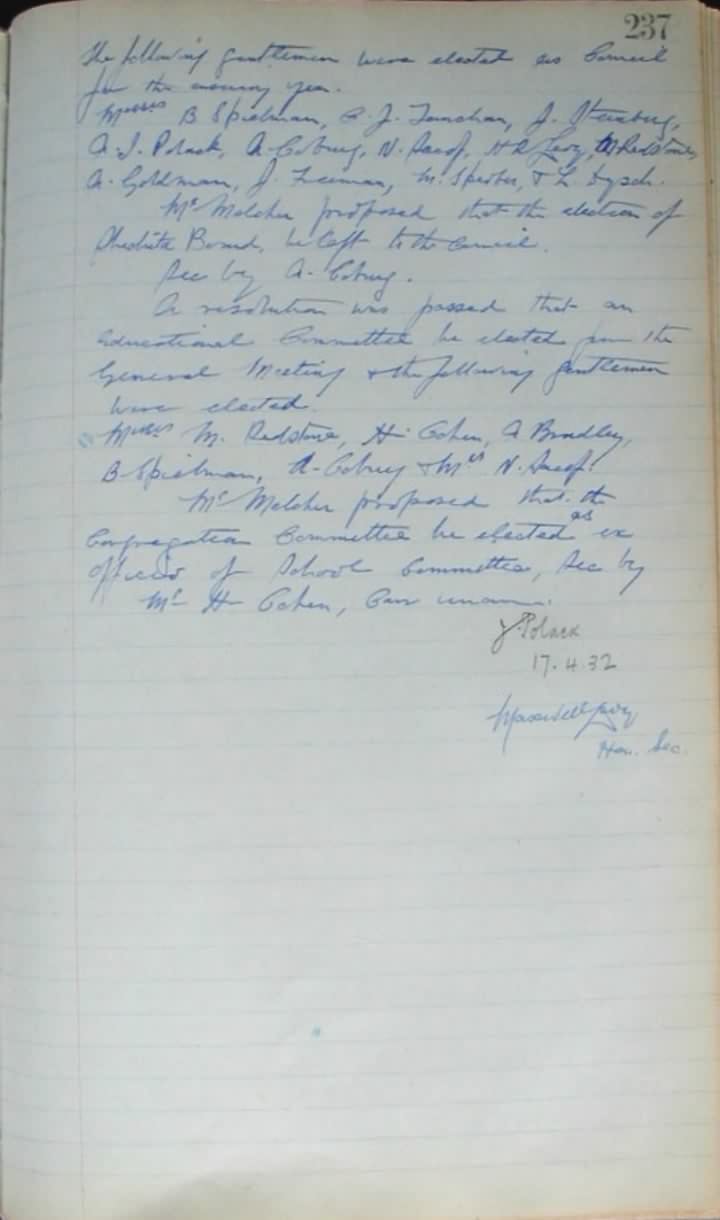 237
The following gentlemen were elected as Council
for the ensuing year.
Messrs B Spielman, J. Steinberg,
A. I. Polack, A. Coburg, N. Jacof, H D Levy, M Redstone,
A. Goldman, J. Freeman, M. Sperber, & L Dysch.
Mr Melcher proposed that the election of
Shechita Board, be left to the Council.
Sec by A. Coburg.
A resolution was passed that an
Educational Committee be elected from the
General Meeting & the following gentlemen
were elected.
Messrs M. Redstone, H Cohen, A Bradley,
B Spielman, A. Coburg & Mrs N. Jacof.
Mr Melcher proposed that the
Congregation Committee be elected as ex
officio of School Committee, Sec by
Mr H Cohen, Carr unam.
J. Polack
17.4.32
Maxwell Levy
Hon. Sec.